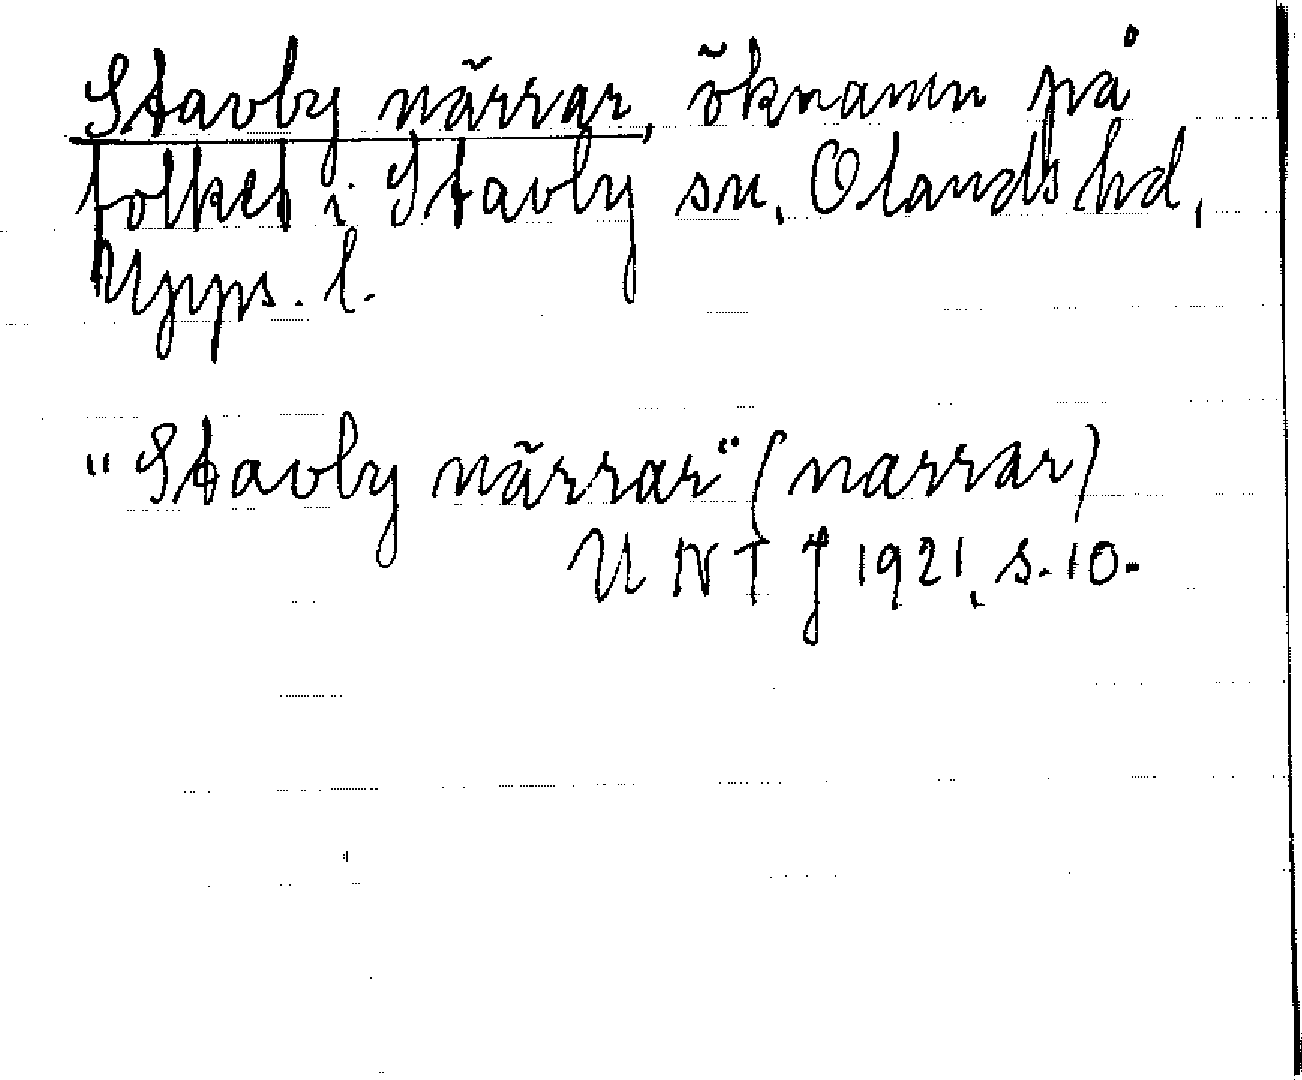 Stavby närrar, öknamn på
folket i Stavby sn, Olands hd,
Upps. l.
"Stavby närrar" (narrar)
UNT J 1921, s. 10.